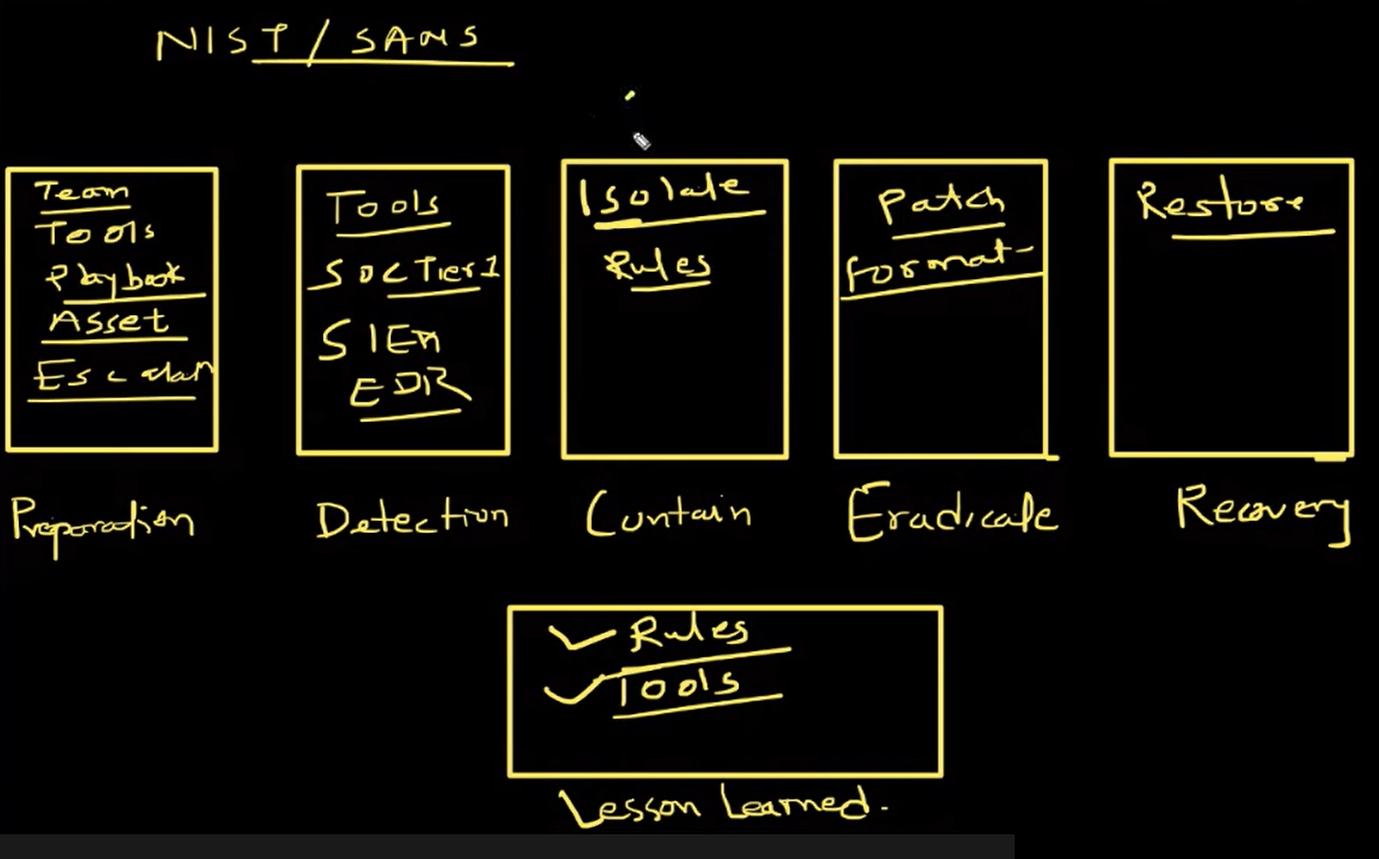 NIST / SANS
Team
Tools
Playbook
Asset
Preparation
Tools
SOC Tier 1
SIEM
EDR
Detection
Isolate
Rules
Contain
Patch
Format
Eradicate
Restore
Recovery
Rules
Tools
Lesson Learned.